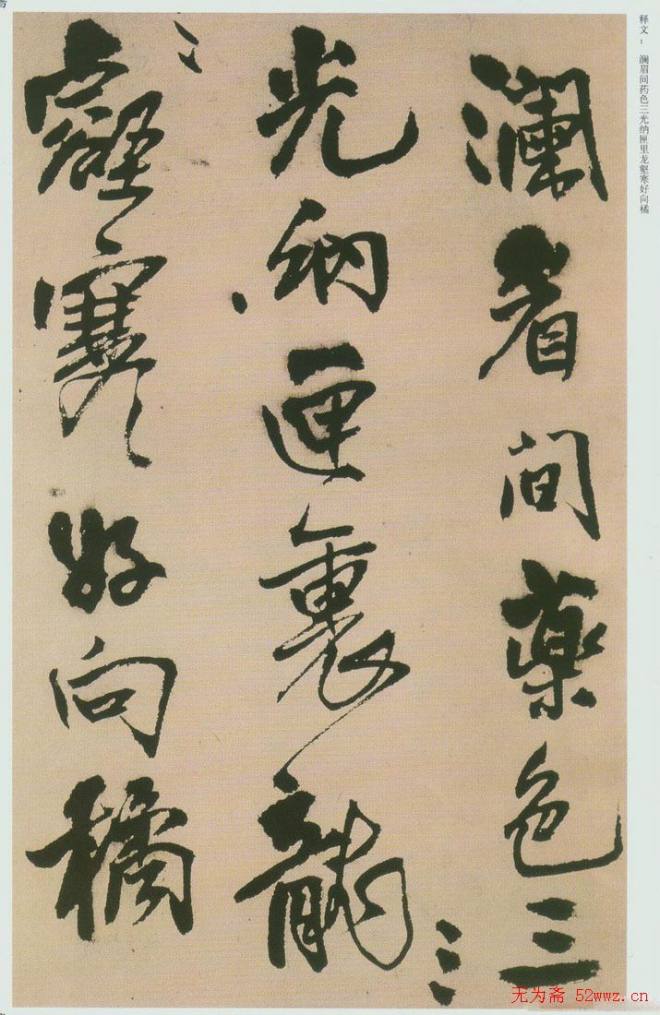 释文：澜眉间药色三光纳匣里龙壑寒好向橘
瀾眉間藥色三
光納匣裏龍
壑寒好向橘
无为斋 52wwz.cn